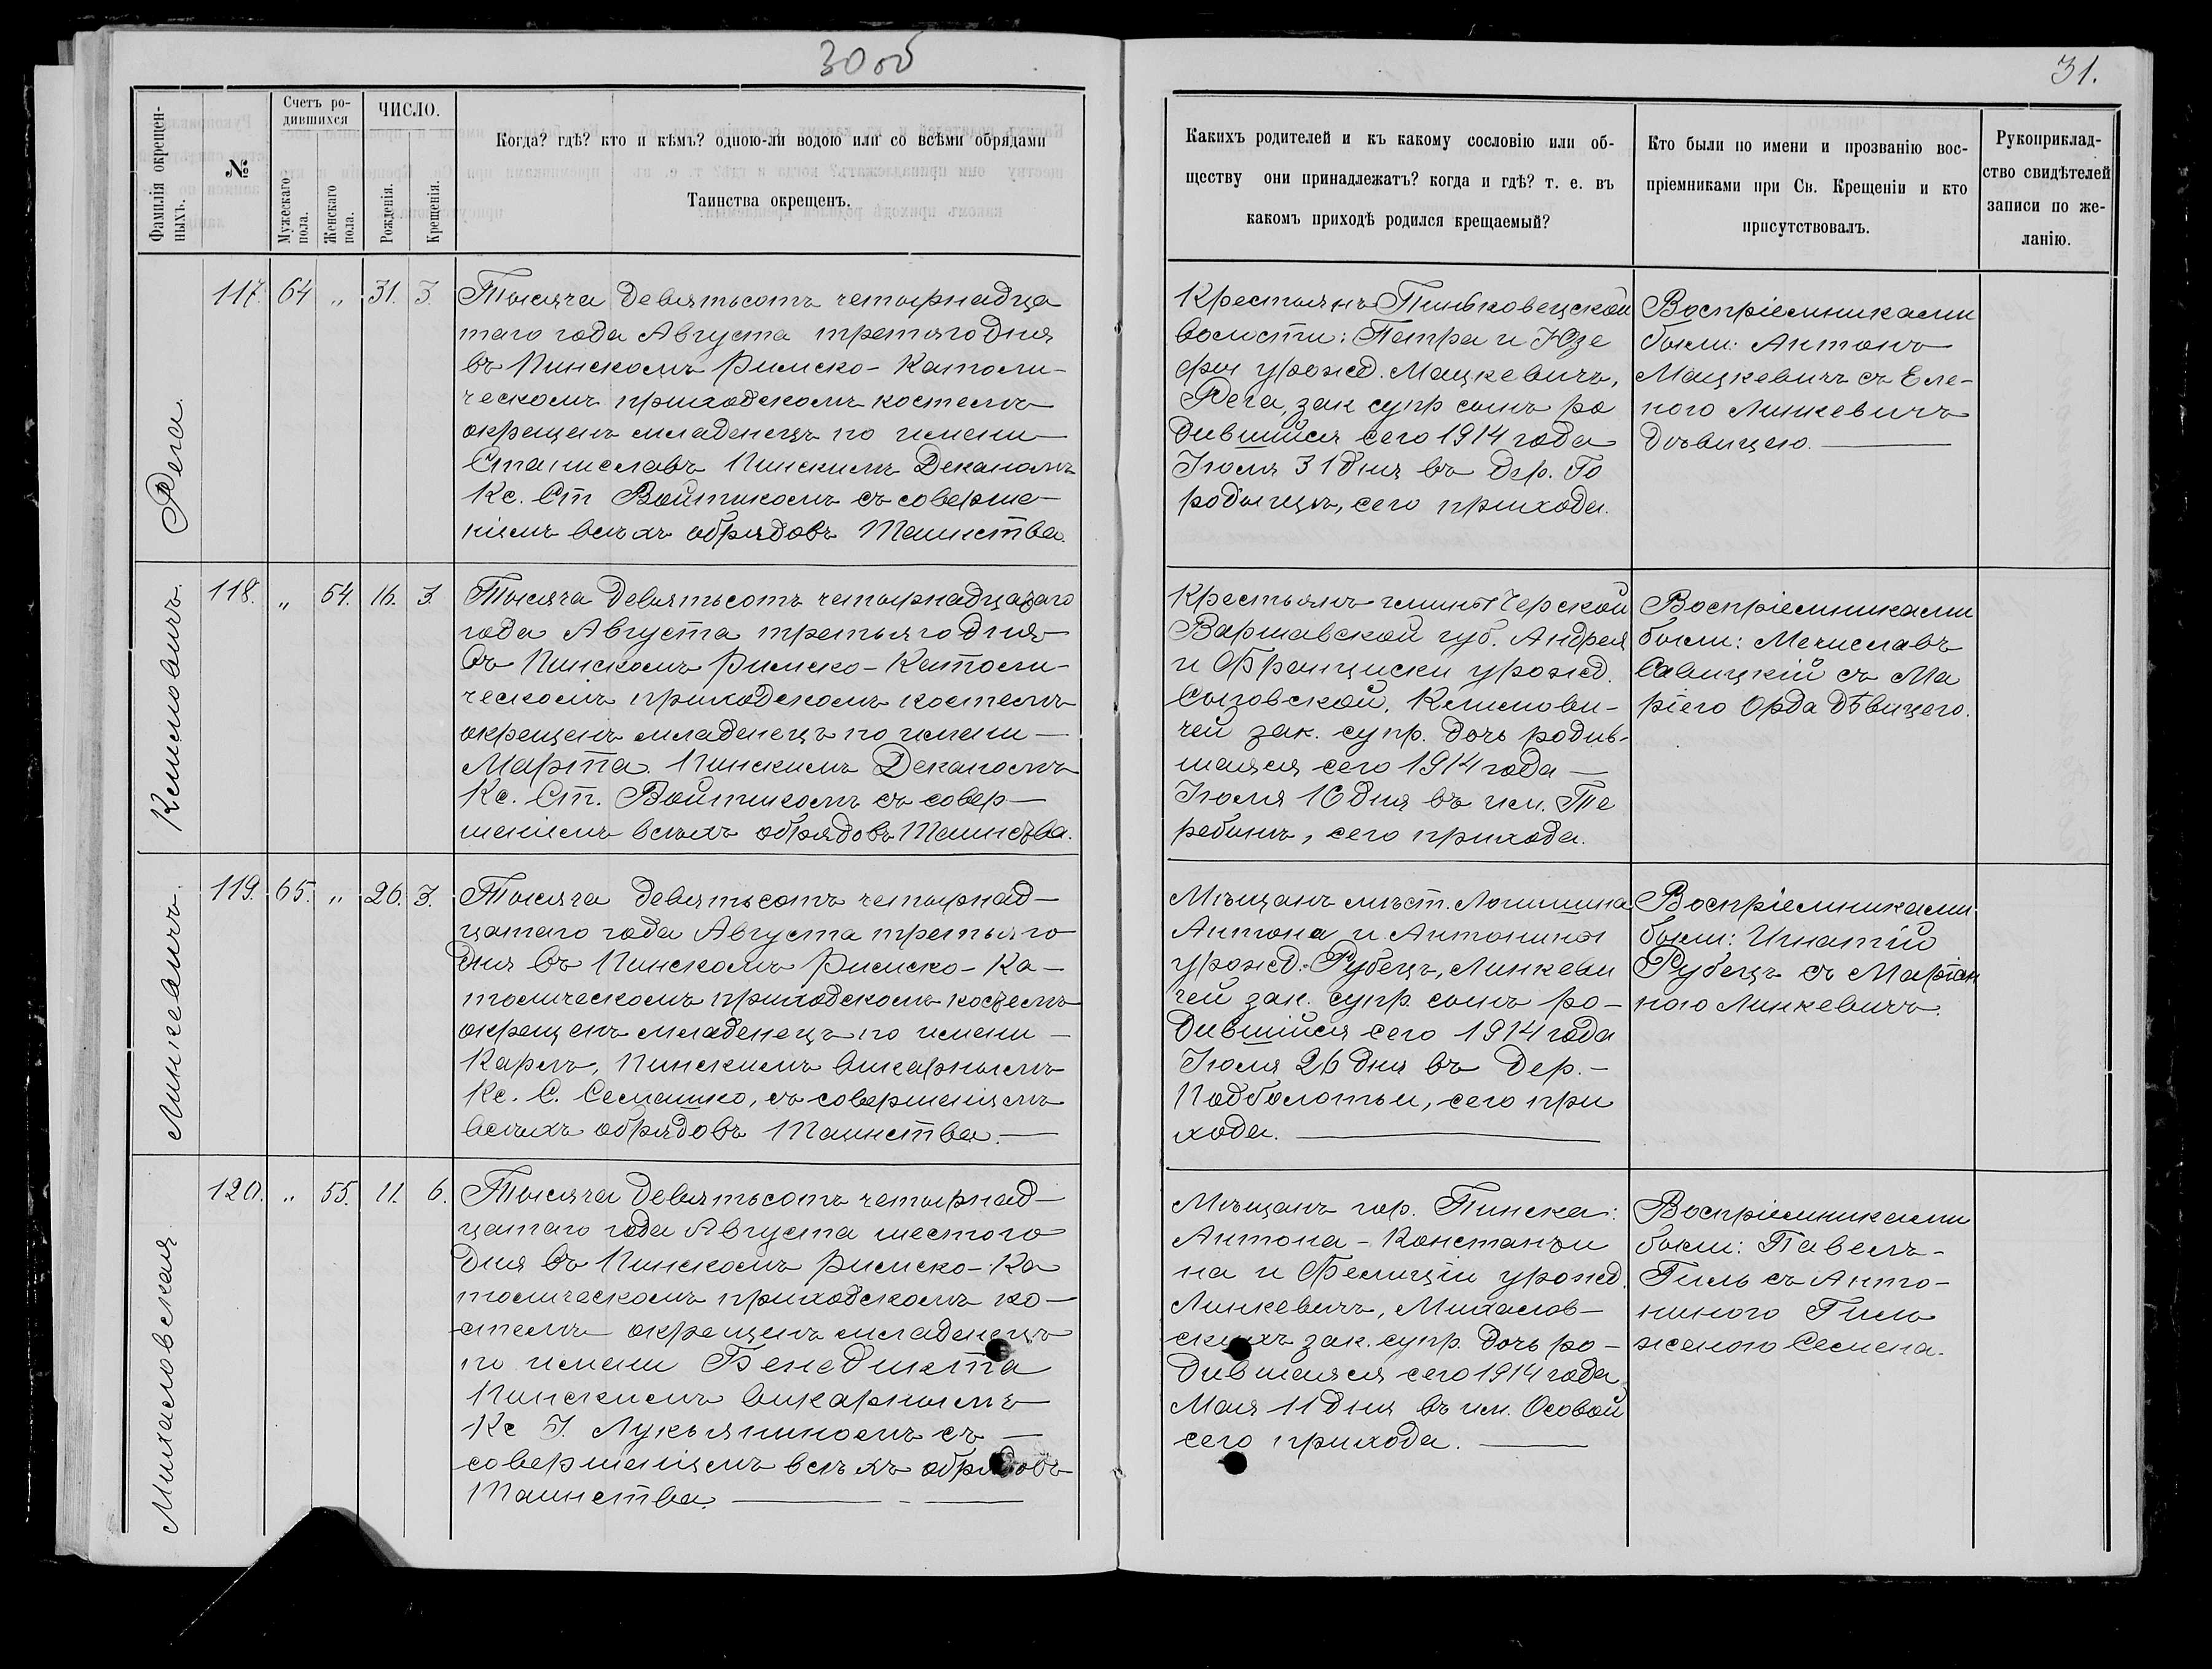 30 об
31.
Фамилія окрещен-
ныхъ.
№
Счетъ ро-
дившихся
Мужескаго
пола.
Женскаго
пола.
ЧИСЛО.
Рожденія.
Крещенія.
Когда? гдѣ? кто и кѣмъ? одною-ли водою или со всѣми обрядами
Таинства окрещенъ.
Какихъ родителей и къ какому сословію или об-
ществу они принадлежатъ? когда и гдѣ? т. е. въ
какомъ приходѣ родился крещаемый?
Кто были по имени и прозванію вос-
пріемниками при Св. Крещеніи и кто
присутствовалъ.
Рукоприклад-
ство свидѣтелей
записи по же-
ланію.
Рега.
117. 64 „ 31. 3.
Тысяча девятьсотъ четырнадца
таго года Августа третьяго дня
въ Пинскомъ Римско-Католи-
ческомъ приходскомъ костелѣ
окрещенъ младенецъ по имени
Станиславъ Пинскимъ Деканомъ
Кс. Ст Войтикомъ съ соверше-
ніемъ всѣхъ обрядовъ Таинства.
Крестьянъ Пиньковецской
волости: Петра и Юзе
фы урожд. Мацкевичъ,
Рега, зак супр сынъ ро
дившійся сего 1914 года
Іюля 31 дня въ дер. Го
родыщѣ, сего прихода.
Воспріемниками
были: Антонъ
Мацкевичъ съ Еле-
ною Линкевичъ
дѣвицею.
Климовичъ.
118. „ 54. 16. 3.
Тысяча девятьсотъ четырнадцатаго
года Августа третьяго дня
въ Пинскомъ Римско-Католи-
ческомъ приходскомъ костелѣ
окрещенъ младенецъ по имени
Марта. Пинскимъ Деканомъ
Кс. Ст. Войтикомъ съ совер-
шеніемъ всѣхъ обрядовъ Таинства.
Крестьянъ гмины Черской
Варшавской губ. Андрея
и Францишки урожд.
Сызовской, Климови-
чей зак. супр. дочь родив-
шаяся сего 1914 года
Іюля 16 дня въ им. Те
ребинѣ, сего прихода.
Воспріемниками
были: Мечиславъ
Савицкій съ Ма
ріею Орда дѣвицею.
Линкевичъ.
119. 65. „ 26. 3.
Тысяча девятьсотъ четырнад-
цатаго года Августа третьяго
дня въ Пинскомъ Римско-Ка-
толическомъ приходскомъ костелѣ
окрещенъ младенецъ по имени
Карлъ, Пинскимъ викарнымъ
Кс. С. Семашко, съ совершеніемъ
всѣхъ обрядовъ Таинства.
Мѣщанъ мѣст. Логишина
Антона и Антонины
урожд. Рубецъ, Линкеви
чей зак. супр. сынъ ро-
дившійся сего 1914 года
Іюля 26 дня въ дер.
Подболотьи, сего при
хода.
Воспріемниками
были: Игнатій
Рубецъ съ Маріан
ною Линкевичъ.
Михаловская
120. „ 55. 11. 6.
Тысяча девятьсотъ четырнад-
цатаго года Августа шестого
дня въ Пинскомъ Римско-Ка
толическомъ приходскомъ ко-
стелѣ окрещенъ младенецъ
по имени Бенедикта
Пинскимъ викарнымъ
Кс І. Лукьяниномъ съ
совершеніемъ всѣхъ обрядовъ
Таинства.
Мѣщанъ гор. Пинска:
Антона-Константи
на и Фелиціи урожд.
Линкевичъ, Михалов-
скихъ зак. супр. дочь ро-
дившаяся сего 1914 года
Мая 11 дня въ им. Особой
сего прихода.
Воспріемниками
были: Павелъ
Гиль съ Анто-
ниною Гиль
женою Семена.